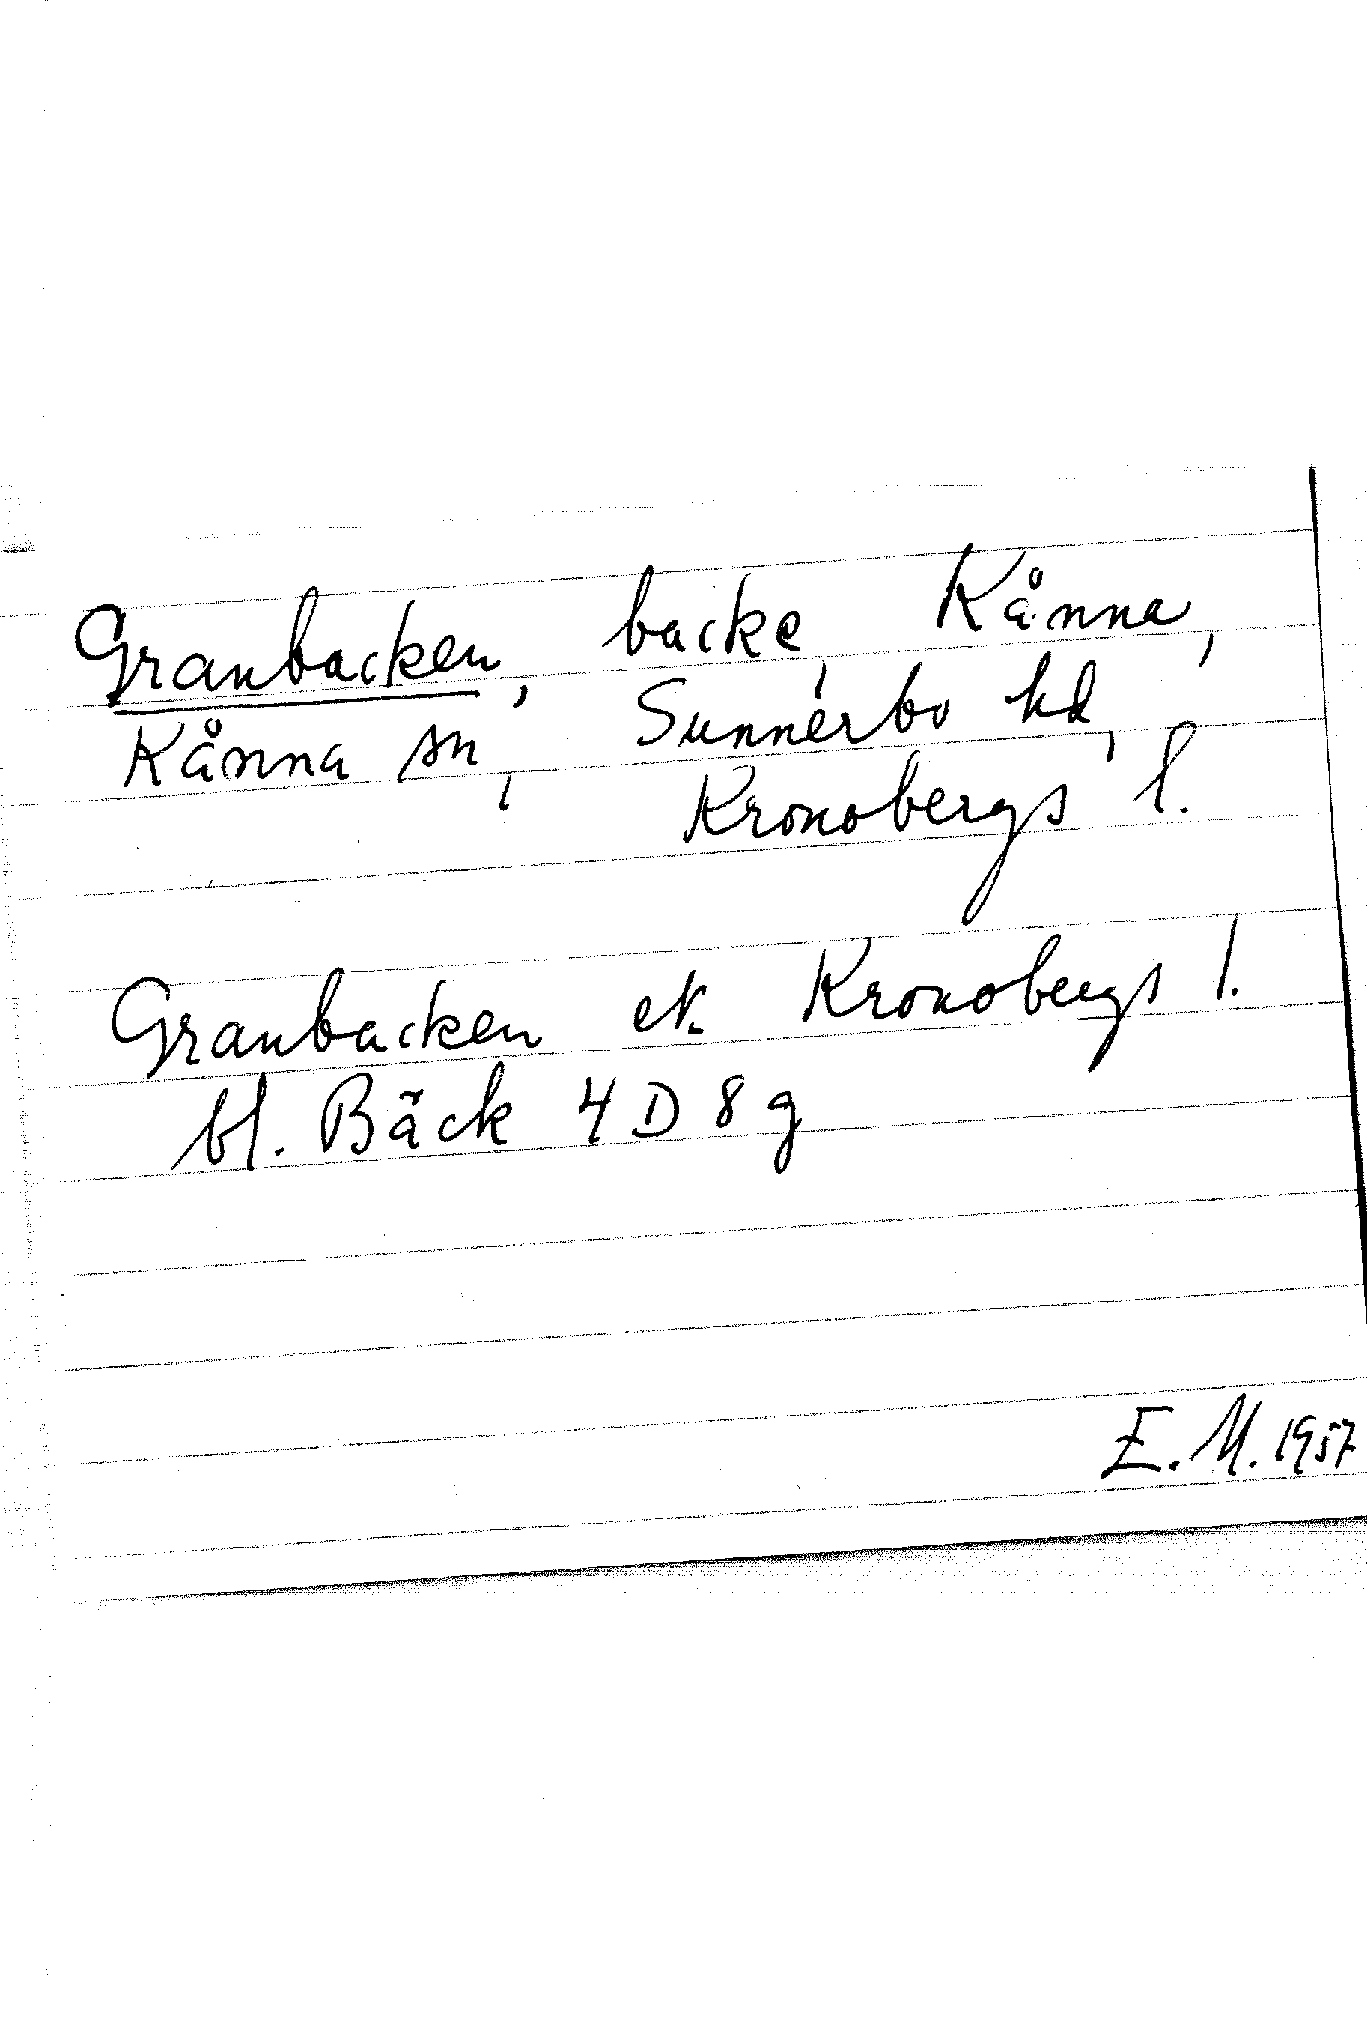 Granbacken, backe, Kånna,
Kånna sn, Sunnerbo hd,
Kronobergs l.
Granbacken ek. Kronobergs l.
bl. Bäck 4 D 8 g
E. M. 1957